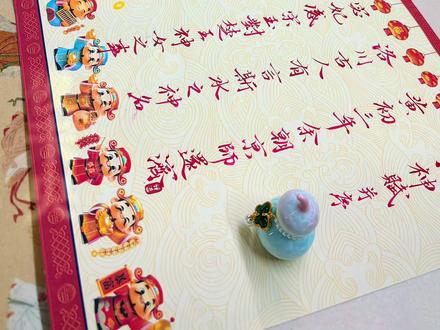 神賦并序
黃初三年余朝京師還濟
洛川古人有言斯水之神名
宓妃感宋玉對楚王神女之事